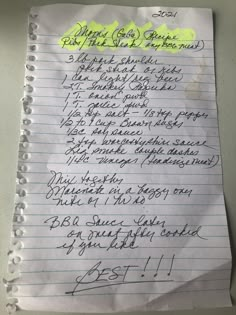 2021
Moms (Gaba) Recipe
Ribs / Pork Steak (any bbq meat)
3 lb pork shoulder
Pork Steak or ribs
1 Can light/reg beer
2 T. Smokey Paprika
1 T. onion pwd
1 T. garlic pwd
1/2 tsp salt - 1/8 tsp pepper
1/2 to 1 cup Brown Sugar
1/4 c Soy Sauce
2 tsp Worcestershire sauce
Liq smoke couple dashes
1/4 c Vinegar (tenderize meat)
Mix together
Marinate in a baggy over
nite or 1 or so
BBQ Sauce later
on meat after cooked
if you like
BEST!!!